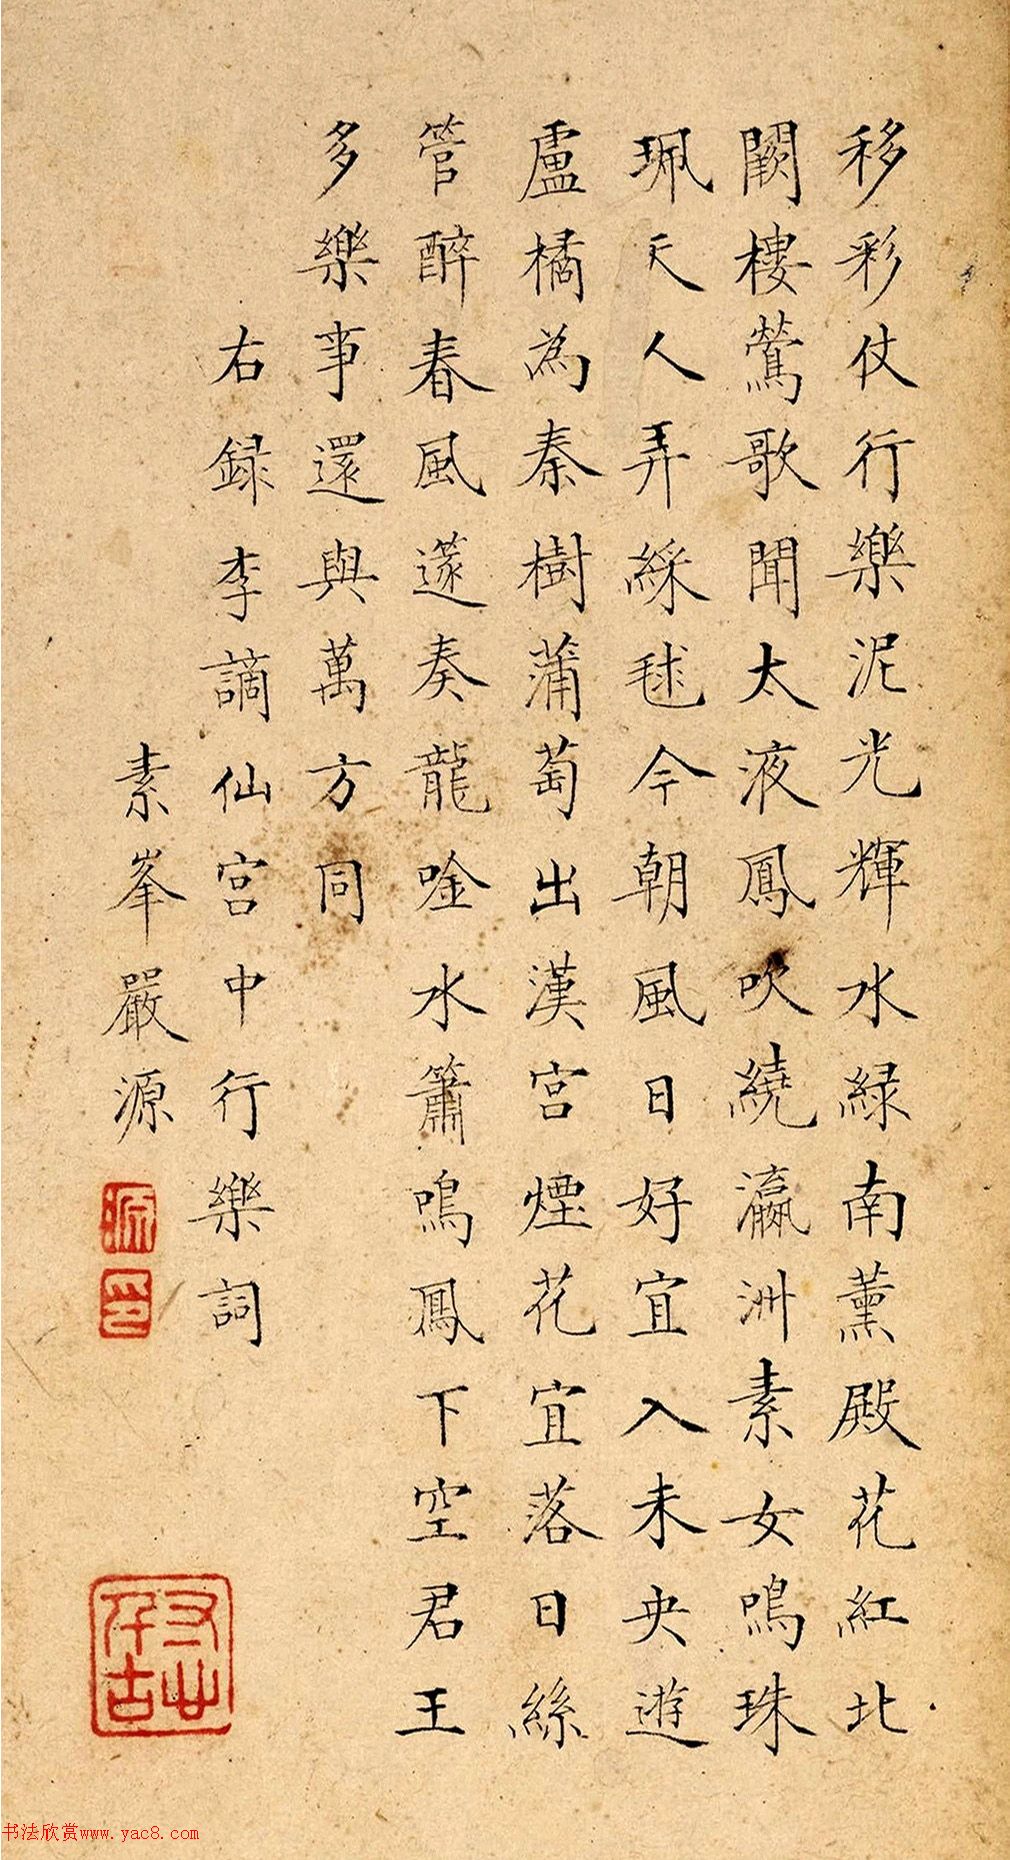 移彩仗行樂泥光輝水緑南薰殿花紅北
闕樓鶯歌聞太液鳳吹繞瀛洲素女鳴珠
珮天人弄綵毬今朝風日好宜入未央遊
盧橘為秦樹蒲萄出漢宮煙花宜落日絲
管醉春風篴奏龍唫水簫鳴鳳下空君王
多樂事還與萬方同
右録李謫仙宮中行樂詞
素峯嚴源
源
印
书法欣赏www.yac8.com